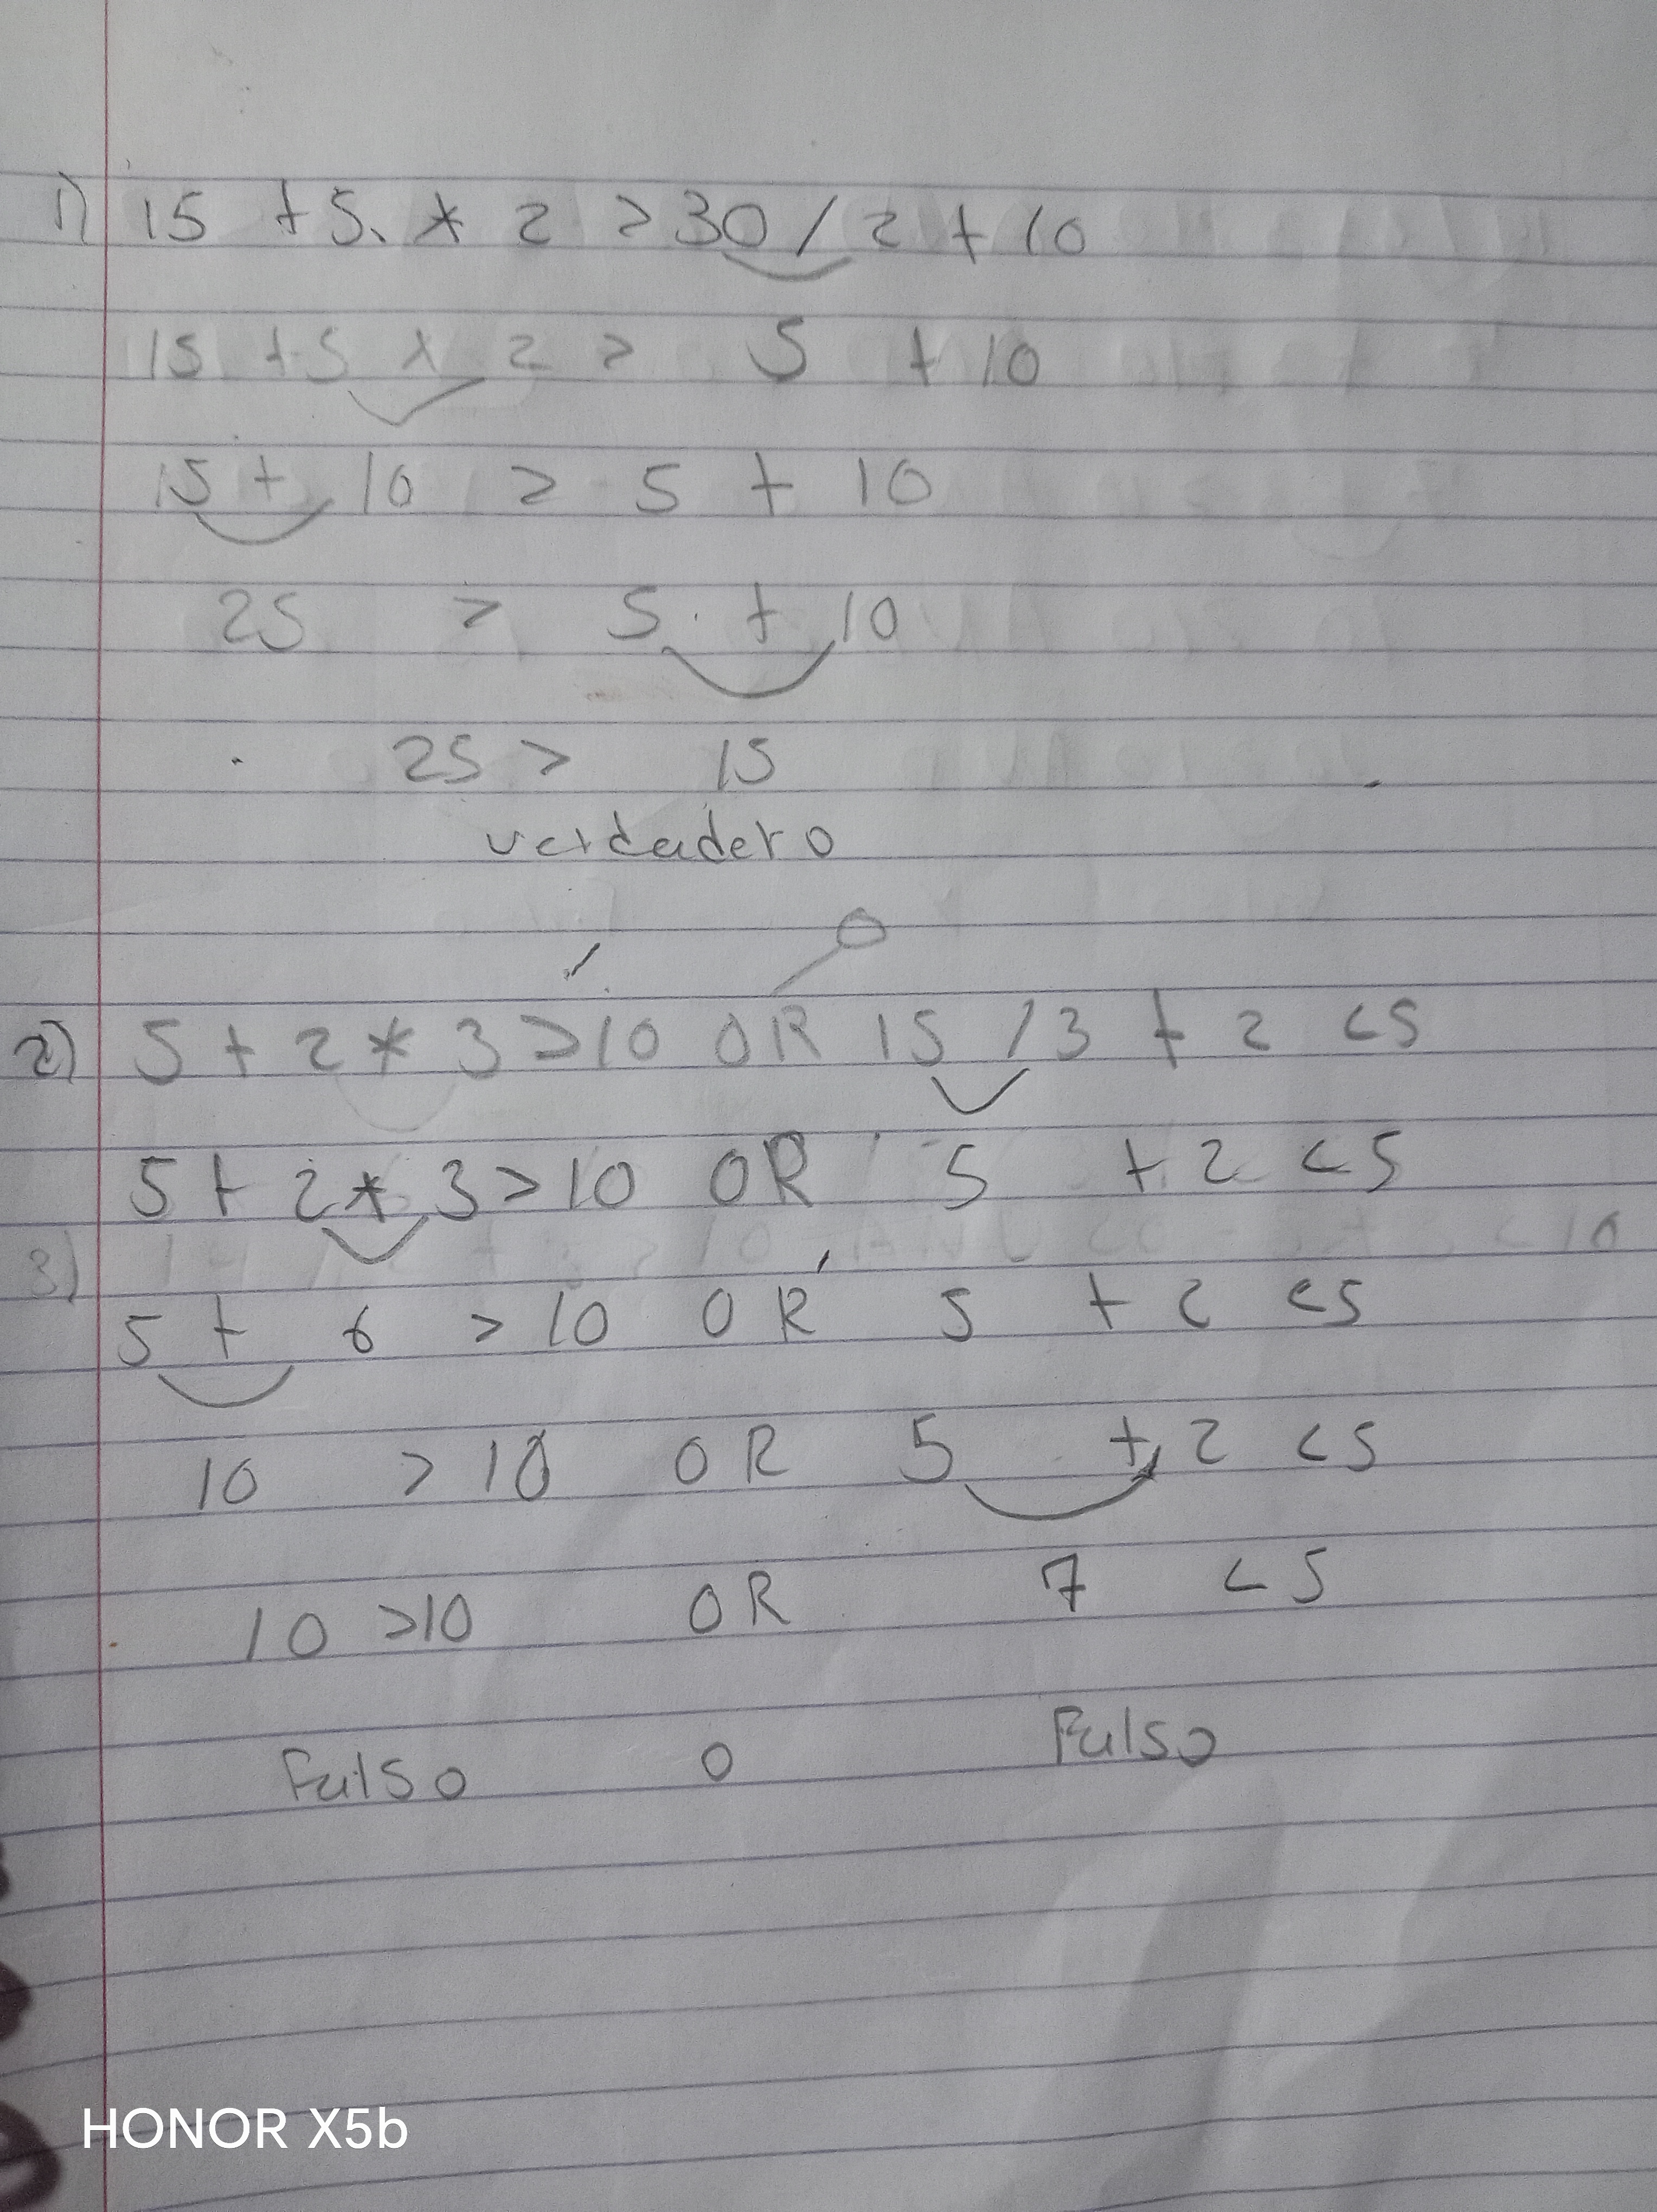 1) 15 + 5 * 2 > 30 / 2 + 10
15 + 5 * 2 > 5 + 10
15 + 10 > 5 + 10
25 > 5 + 10
25 > 15
verdadero
O
2) 5 + 2 * 3 > 10 OR 15 / 3 + 2 < 5
5 + 2 * 3 > 10 OR 5 + 2 < 5
3)
5 + 6 > 10 OR 5 + 2 < 5
10 > 10 OR 5 + 2 < 5
10 > 10 OR 7 < 5
Falso o Falso
HONOR X5b